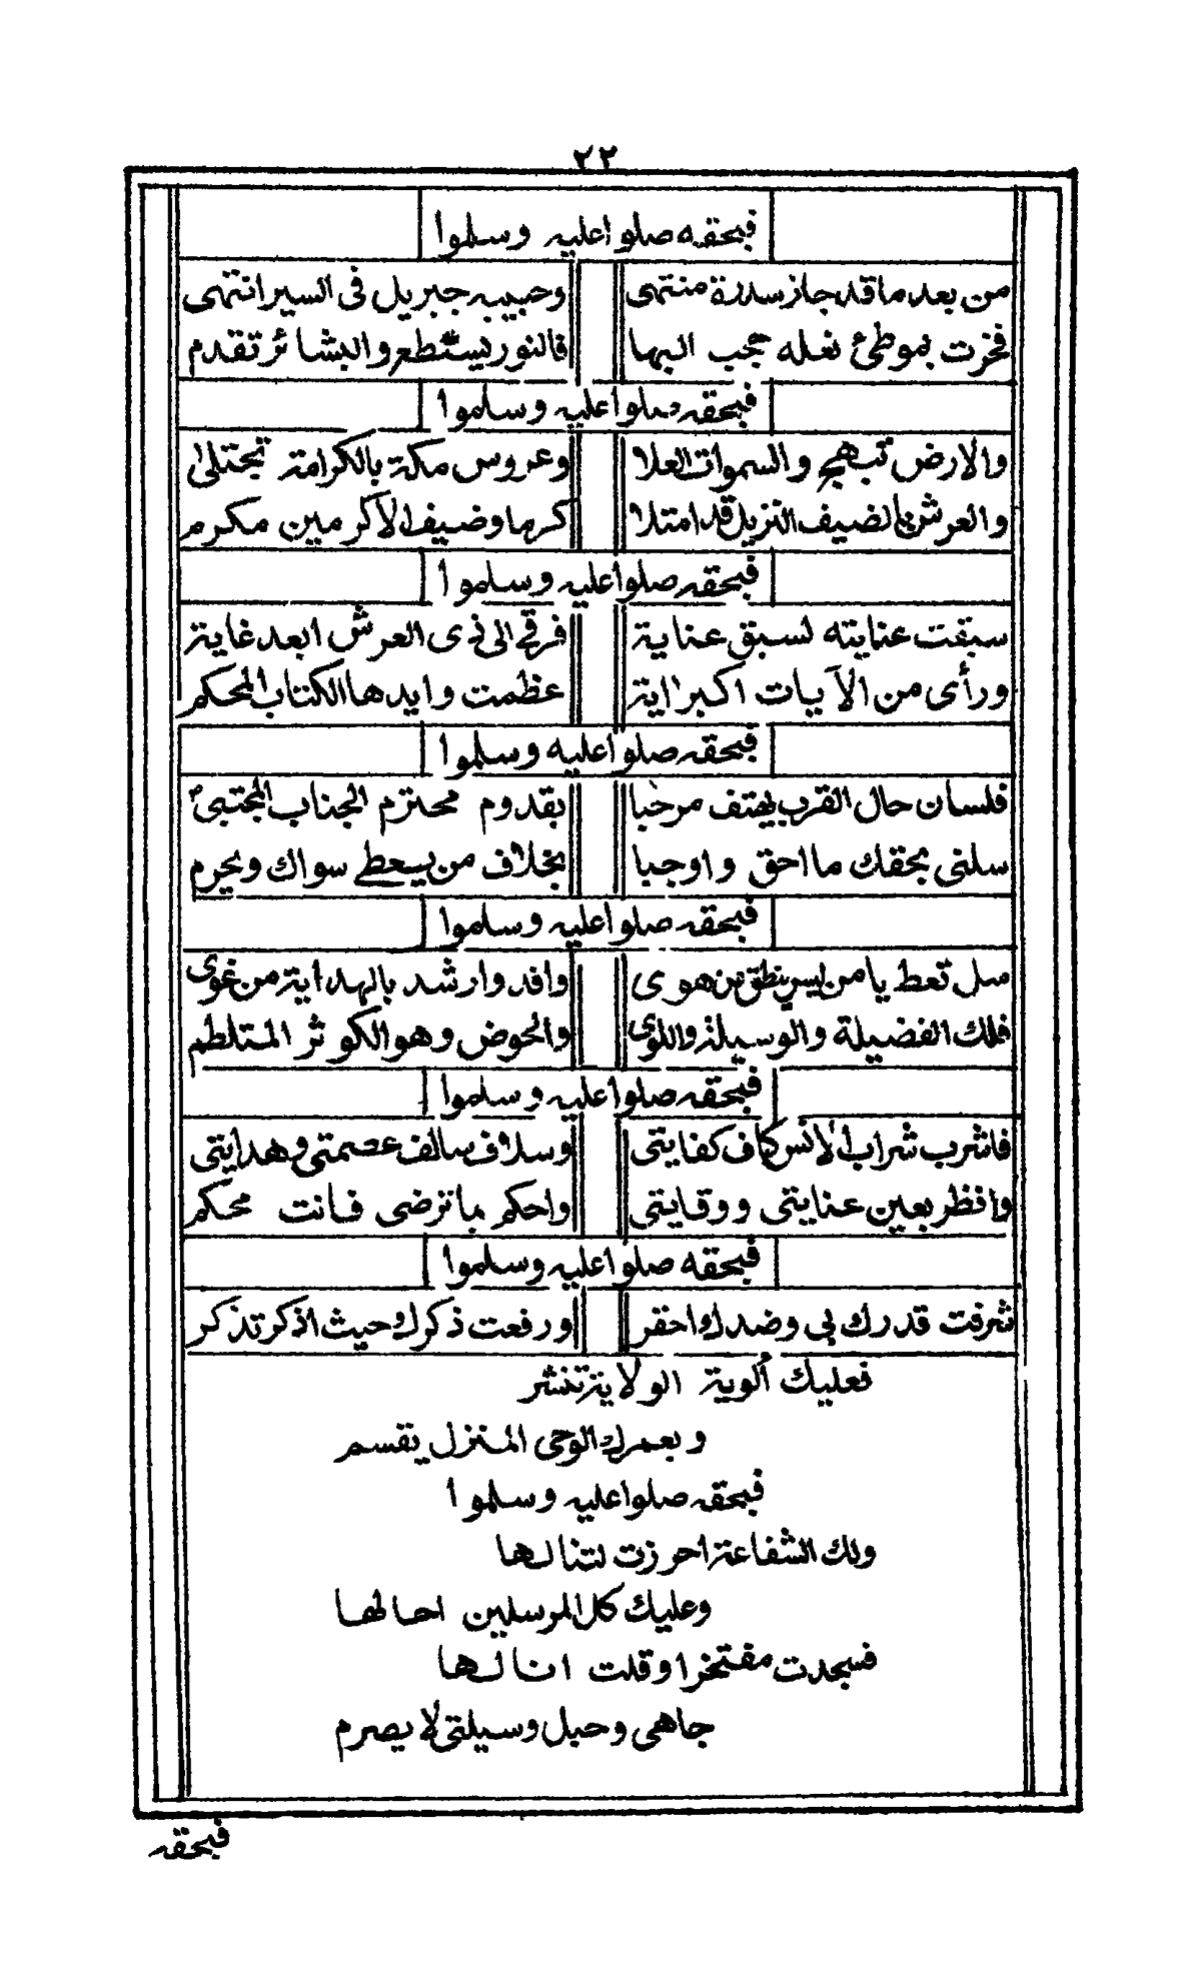 ٢٢
فبحقه صلوا عليه وسلموا
من بعد ما قد جاز سدرة منتهى وحبيبه جبريل فى السير انتهى
فخرت بموطئ نعله حجب البها فالنور يسطع والبشائر تقدم
فبحقه صلوا عليه وسلموا
والارض تبهج والسموات العلا وعروس مكة بالكرامة تجتلى
والعرش بالضيف النزيل قد امتلا كرما وضيف الاكرمين مكرم
فبحقه صلوا عليه وسلموا
سبقت عنايته لسبق عناية فرقى الى ذى العرش ابعد غاية
ورأى من الآيات اكبر اية عظمت وايدها الكتاب المحكم
فبحقه صلوا عليه وسلموا
فلسان حال القرب يهتف مرحبا بقدوم محترم الجناب المجتبى
سلنى بحقك ما احق واوجبا بخلاف من يعطى سواك ويحرم
فبحقه صلوا عليه وسلموا
سل تعط يا من ليس ينطق عن هوى وافد وارشد بالهداية من غوى
فلك الفضيلة والوسيلة واللوى والحوض وهو الكوثر المتلطم
فبحقه صلوا عليه وسلموا
فاشرب شراب الانس كاف كفايتى وسلاف سالف عصمتى وهدايتى
وانظر بعين عنايتى ووقايتى واحكم بما ترضى فانت محكم
فبحقه صلوا عليه وسلموا
شرفت قدرك بى وضدك احقر ورفعت ذكرك وحيث اذكر تذكر
فعليك ألوية الولاية تنشر
وبعمرك الوحى المنزل يقسم
فبحقه صلوا عليه وسلموا
ولك الشفاعة احرزت لتنالها
وعليك كل المرسلين احالها
فسجدت مفتخرا وقلت انا لها
جاهى وحبل وسيلتى لا يصرم
فبحقه